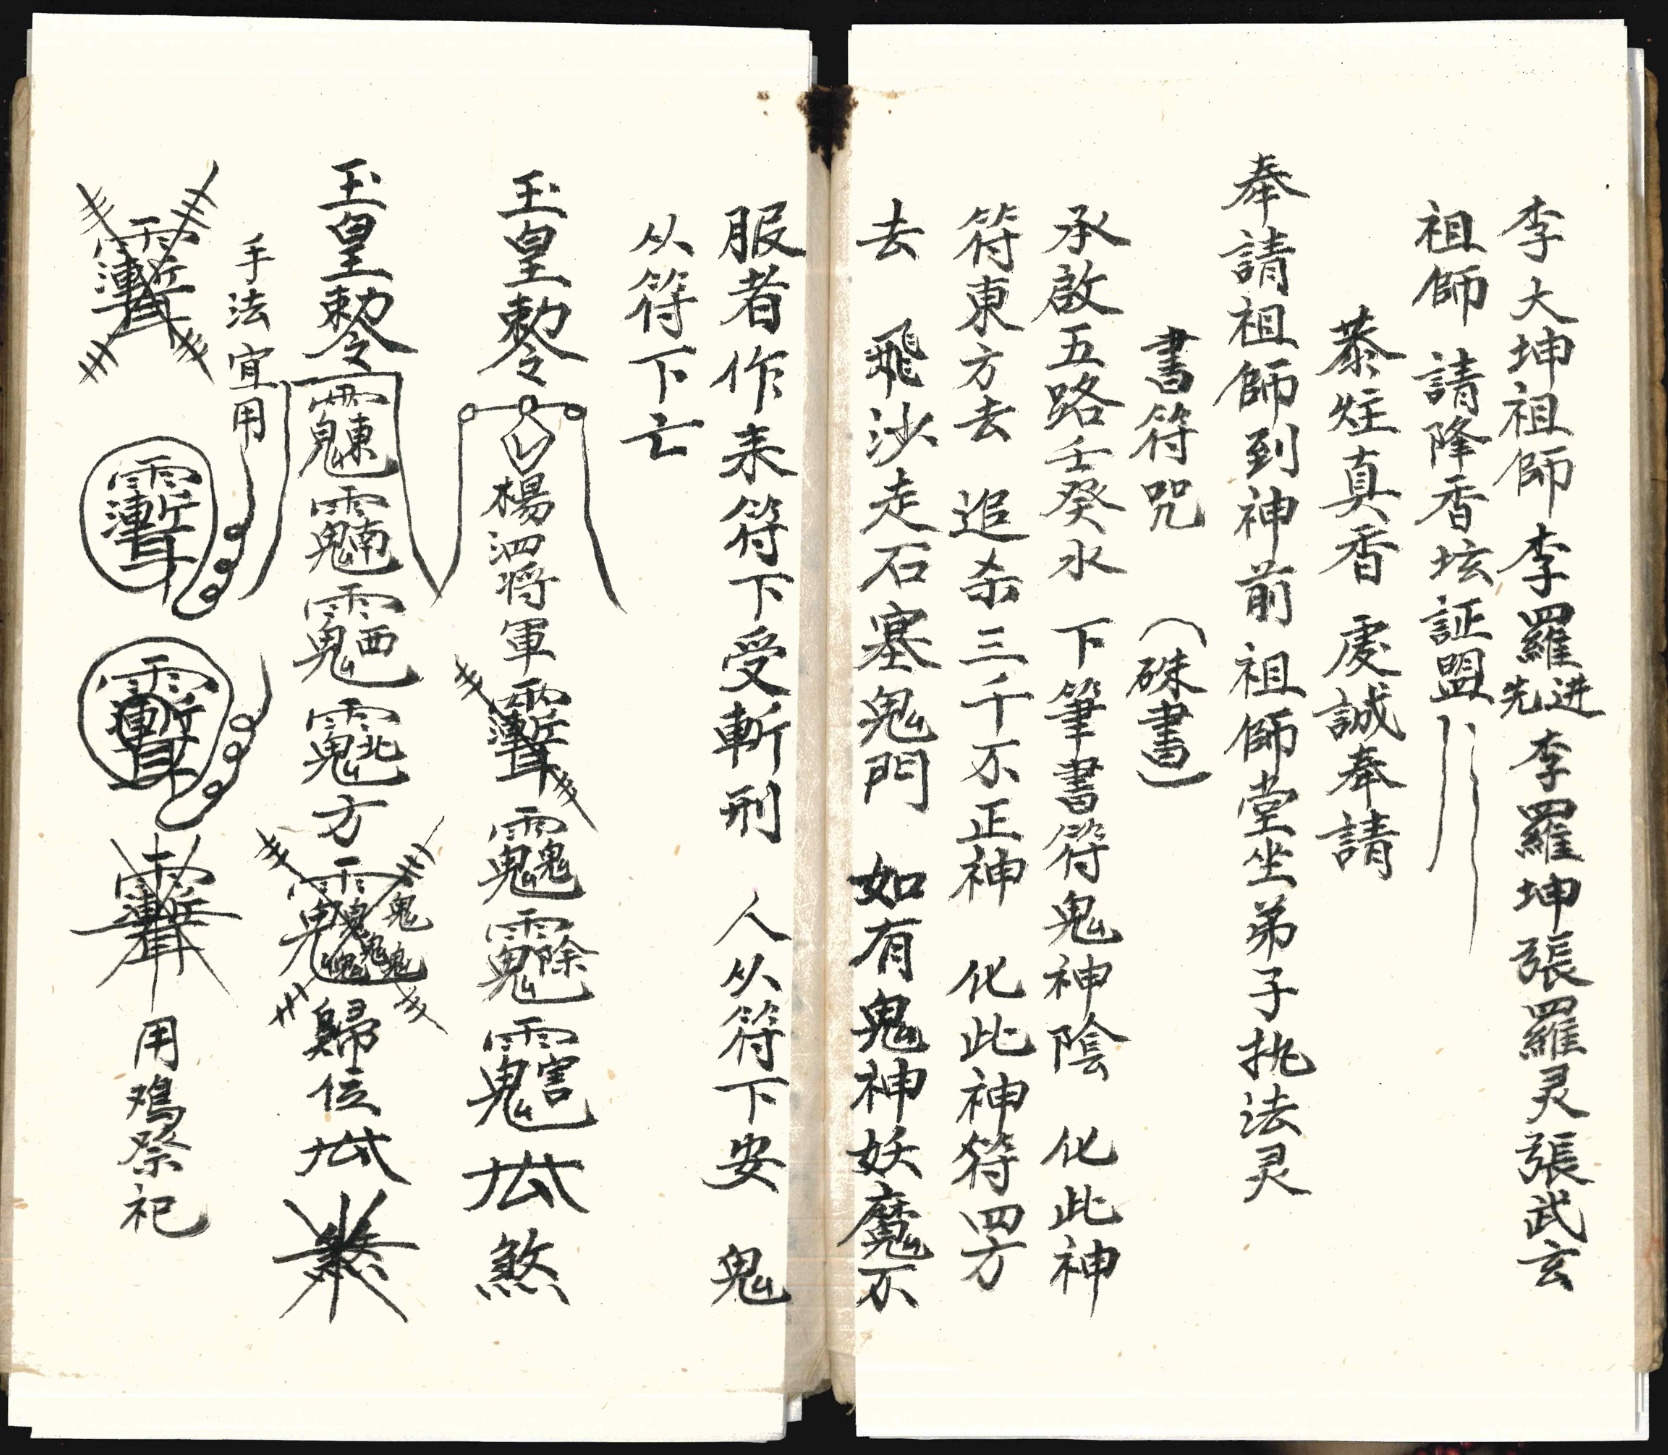 李大坤祖師李羅先进李羅坤張羅灵張武玄
祖師 請降香坛証盟
恭炷真香 虔誠奉請
奉請祖師到神前祖師堂坐弟子执法灵
書符咒 (硃書)
承啟五路壬癸水 下筆書符鬼神陰 化此神
符東方去 追杀三千不正神 化此神符四方
去 飛沙走石塞鬼門 如有鬼神妖魔不
服者作耒符下受斬刑 人从符下安 鬼
从符下亡
玉皇勅令 楊泗将軍 煞
玉皇勅令 方 歸位
手法宜用
用鸡祭祀